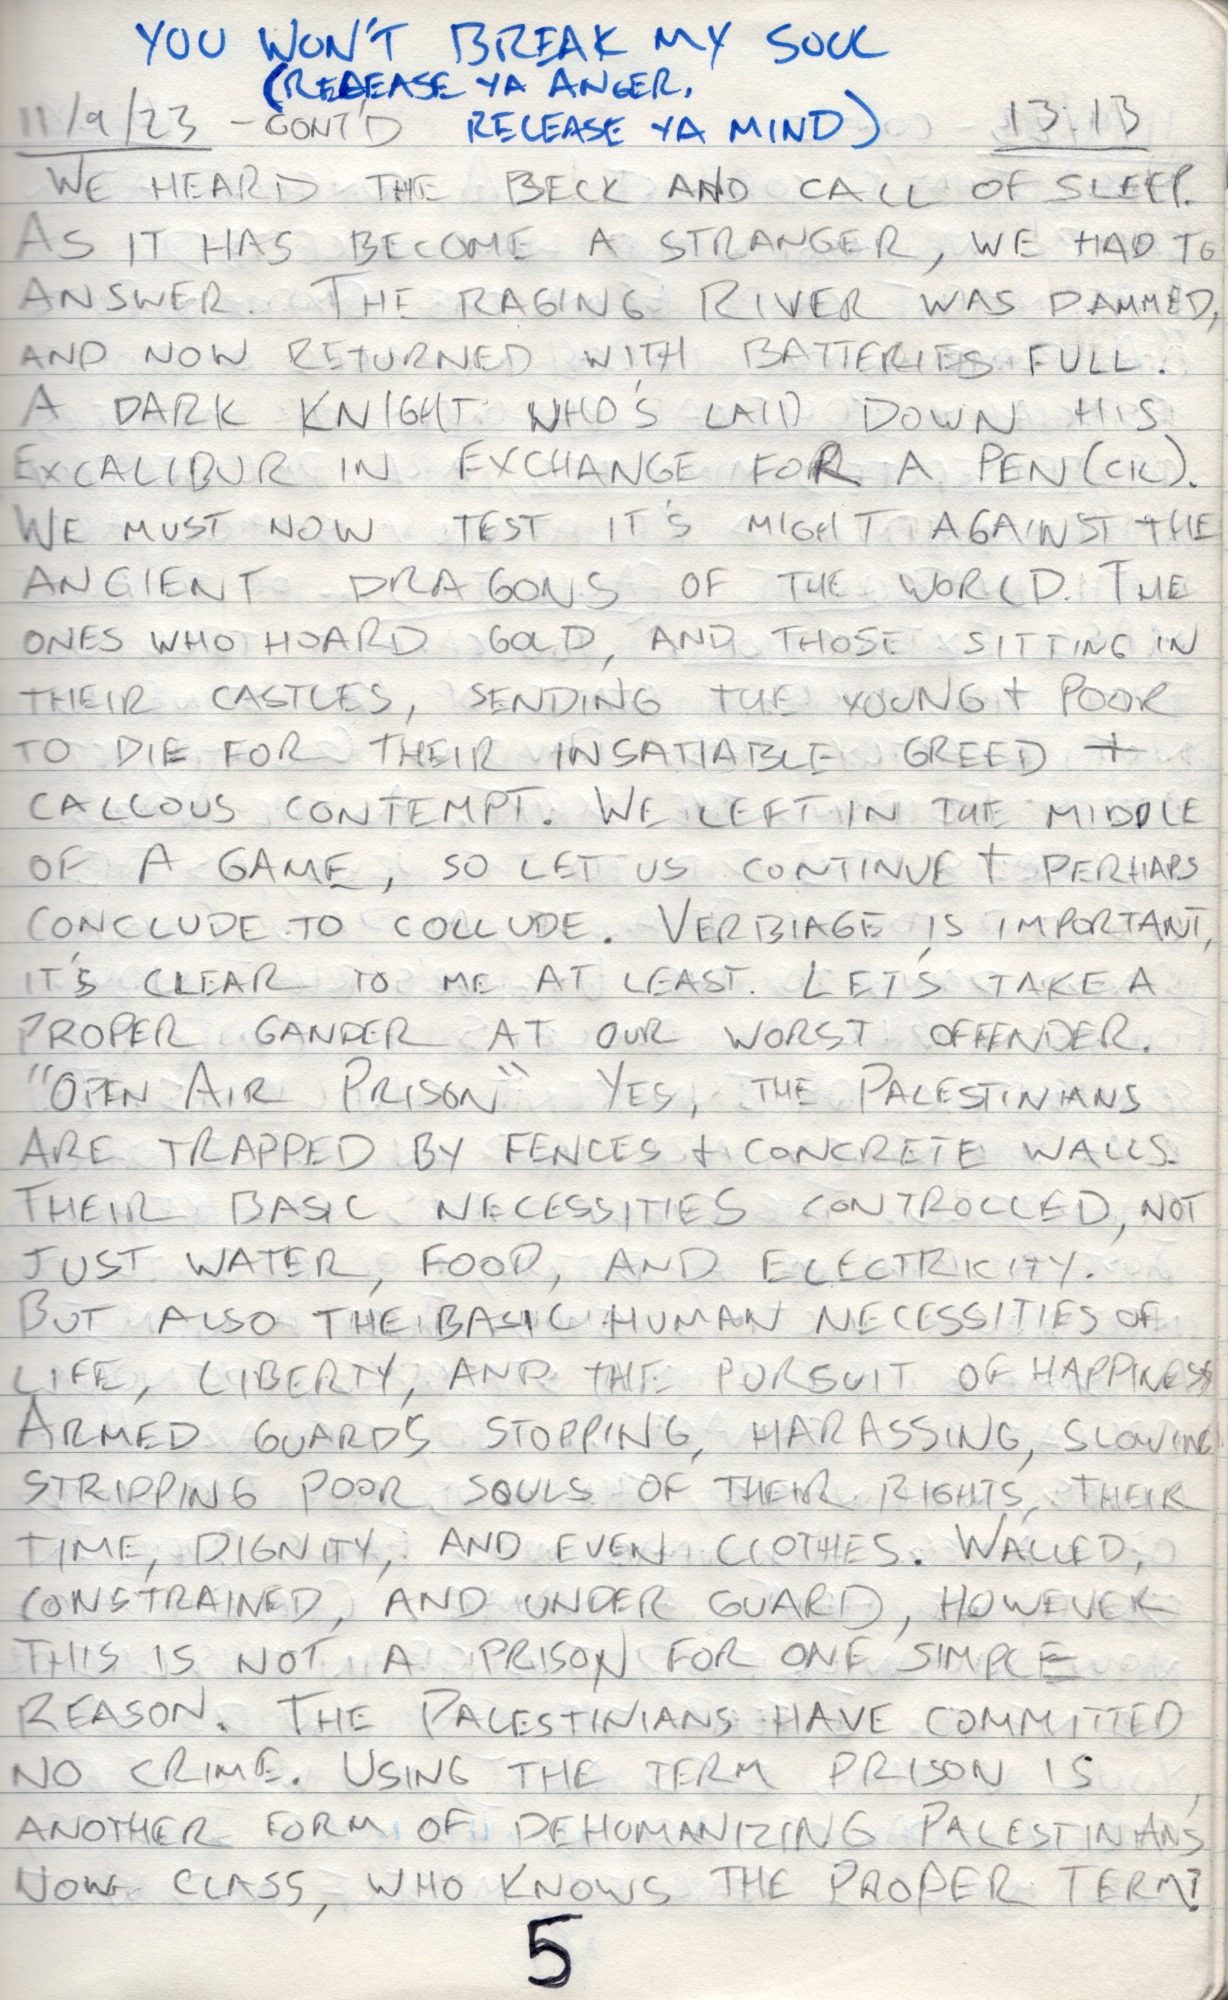 YOU WON'T BREAK MY SOUL
(RELEASE YA ANGER,
11/9/23 - CONT'D RELEASE YA MIND) 13:13
WE HEARD THE BECK AND CALL OF SLEEP.
AS IT HAS BECOME A STRANGER, WE HAD TO
ANSWER. THE RAGING RIVER WAS DAMMED,
AND NOW RETURNED WITH BATTERIES FULL.
A DARK KNIGHT WHO'S LAID DOWN HIS
EXCALIBUR IN EXCHANGE FOR A PEN(CIL).
WE MUST NOW TEST IT'S MIGHT AGAINST THE
ANCIENT DRAGONS OF THE WORLD. THE
ONES WHO HOARD GOLD, AND THOSE SITTING IN
THEIR CASTLES, SENDING THE YOUNG + POOR
TO DIE FOR THEIR INSATIABLE GREED +
CALLOUS CONTEMPT. WE LEFT IN THE MIDDLE
OF A GAME, SO LET US CONTINUE + PERHAPS
CONCLUDE TO COLLUDE. VERBIAGE IS IMPORTANT,
IT'S CLEAR TO ME AT LEAST. LET'S TAKE A
PROPER GANDER AT OUR WORST OFFENDER.
"OPEN AIR PRISON" YES, THE PALESTINIANS
ARE TRAPPED BY FENCES + CONCRETE WALLS.
THEIR BASIC NECESSITIES CONTROLLED, NOT
JUST WATER, FOOD, AND ELECTRICITY.
BUT ALSO THE BASIC HUMAN NECESSITIES OF
LIFE, LIBERTY, AND THE PURSUIT OF HAPPINESS
ARMED GUARDS STOPPING, HARASSING, SLOWING
STRIPPING POOR SOULS OF THEIR RIGHTS, THEIR
TIME, DIGNITY, AND EVEN CLOTHES. WALLED,
CONSTRAINED, AND UNDER GUARD, HOWEVER
THIS IS NOT A PRISON FOR ONE SIMPLE
REASON. THE PALESTINIANS HAVE COMMITTED
NO CRIME. USING THE TERM PRISON IS
ANOTHER FORM OF DEHUMANIZING PALESTINIANS,
NOW CLASS, WHO KNOWS THE PROPER TERM?
5